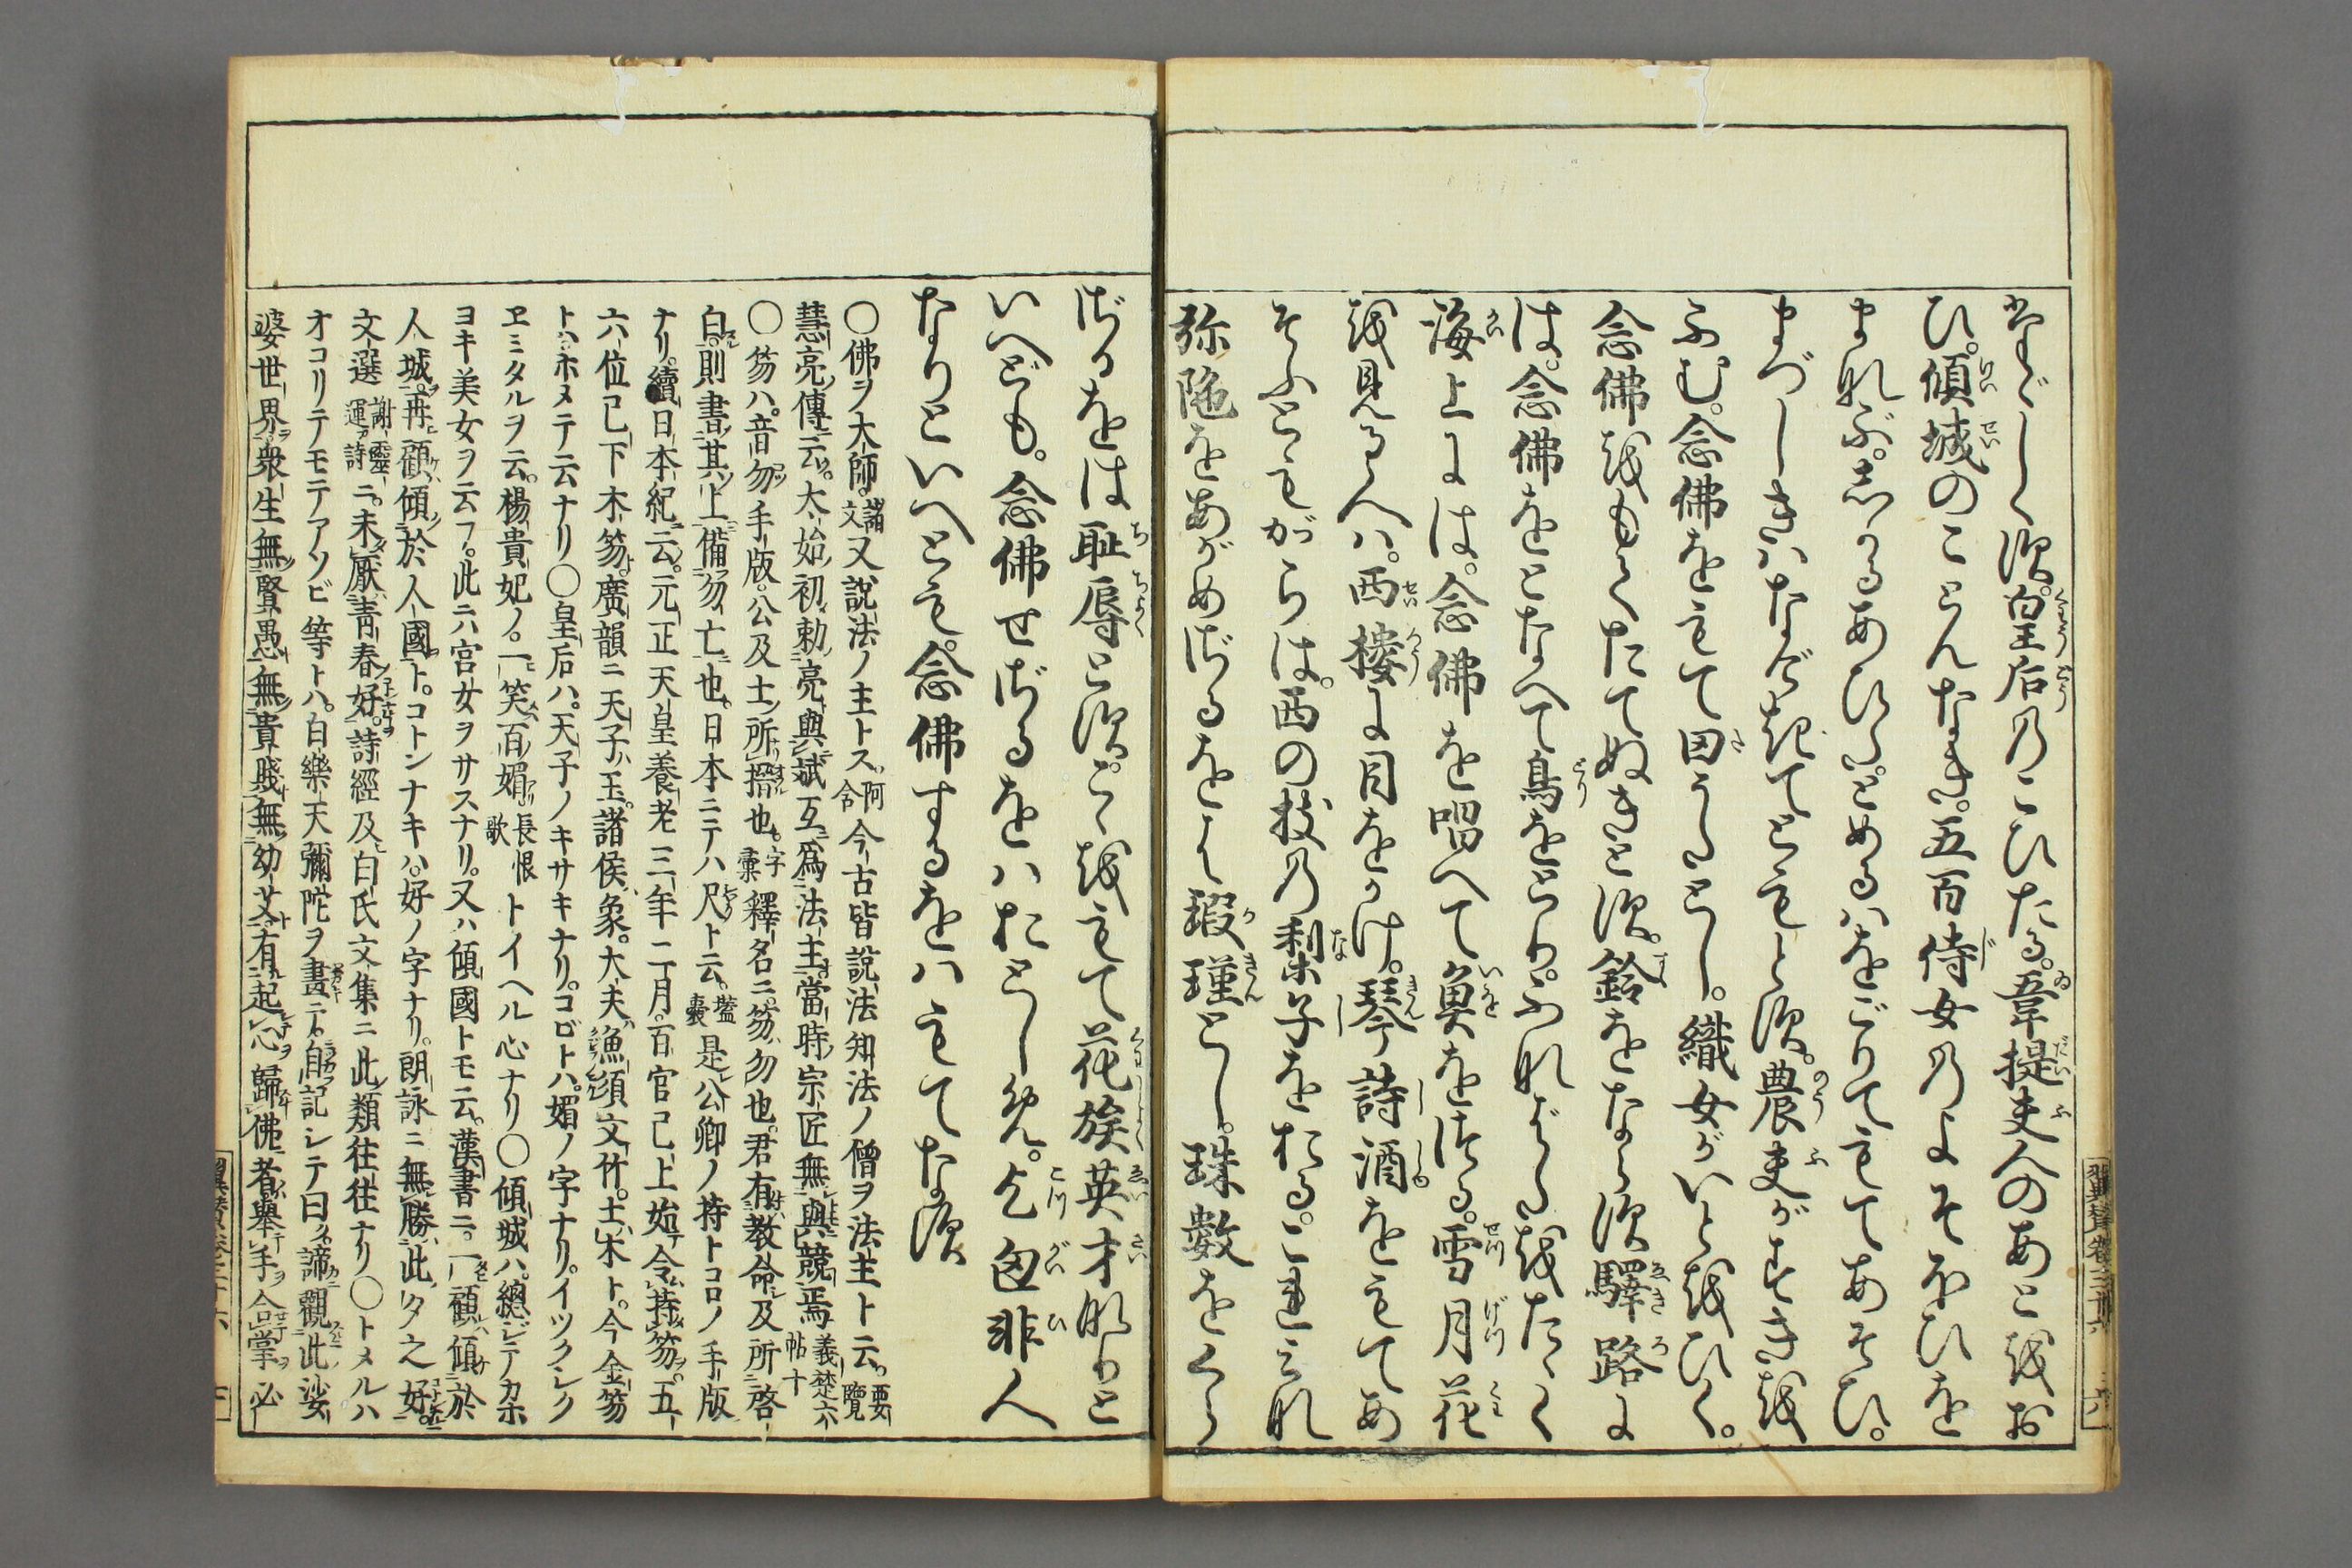 ひ。傾城のことんなき。五百侍女のよそほひを
まなぶ。しかるあひだとめるはをごりてもてあそび。
まづしきはなげきてともとす。農夫がすきを
ふむ。念佛をもて田うたとし。織女がいとをひく。
念佛をもてたてぬきとす。鈴をならす驛路に
は。念佛をとなへて鳥をとり。ふなばたをたゝく
海上には。念佛を唱へて魚をつる。雪月花
を見る人は。西樓に目をかけ。琴詩酒をもてあ
そぶともがらは。西の枝の梨子をおる。これみな
弥陀をあがめざるをば瑕瑾とし。珠数をくら
ざるをは耻辱とす。こゝをもて花族英才なりと
いへども。念佛せざるをはおとしめ。乞匃非人
なりといへとも。念佛するをはもてなす
〇佛ヲ大師。諸文又說法ノ主トス。阿含今古皆說法知法ノ僧ヲ法主ト云。要覽
慧亮傳云。太始初勅亮與斌互爲法主當時宗匠無與競焉義楚六帖十
〇笏ハ。音勿手版。公及士所搢也。字彙釋名ニ。笏勿也。君有教命及所啓
白。則書其上備勿亡也。日本ニテハ尺ト云。壒囊是公卿ノ持トコロノ手版
ナリ。續日本紀云。元正天皇養老三年二月。百官已上始令持笏。五
六位已下木笏。廣韻ニ天子玉。諸侯象。大夫魚須文竹。士木ト。今金笏
トハホメテ云ナリ〇皇后ハ。天子ノキサキナリ。コビトハ。媚ノ字ナリ。イツクシク
ヱミタルヲ云。楊貴妃ノ。一笑百媚長恨歌トイヘル心ナリ〇傾城ハ。總シテカホ
ヨキ美女ヲ云フ。此ニハ宮女ヲサスナリ。又ハ傾國トモ云。漢書ニ。一顧傾於
人城。再顧傾於人國ト。コトンナキハ。好ノ字ナリ。朗詠ニ無勝此タ之好。
文選謝靈運詩ニ。未厭靑春好。詩經及白氏文集ニ此類往往ナリ〇トメルハ
オコリテモテアソビ等トハ。白樂天彌陀ヲ畫ニ。自記シテ曰ク。諦觀此娑
婆世界衆生無賢愚無貴賤無幼艾有起心歸佛者擧手合掌必